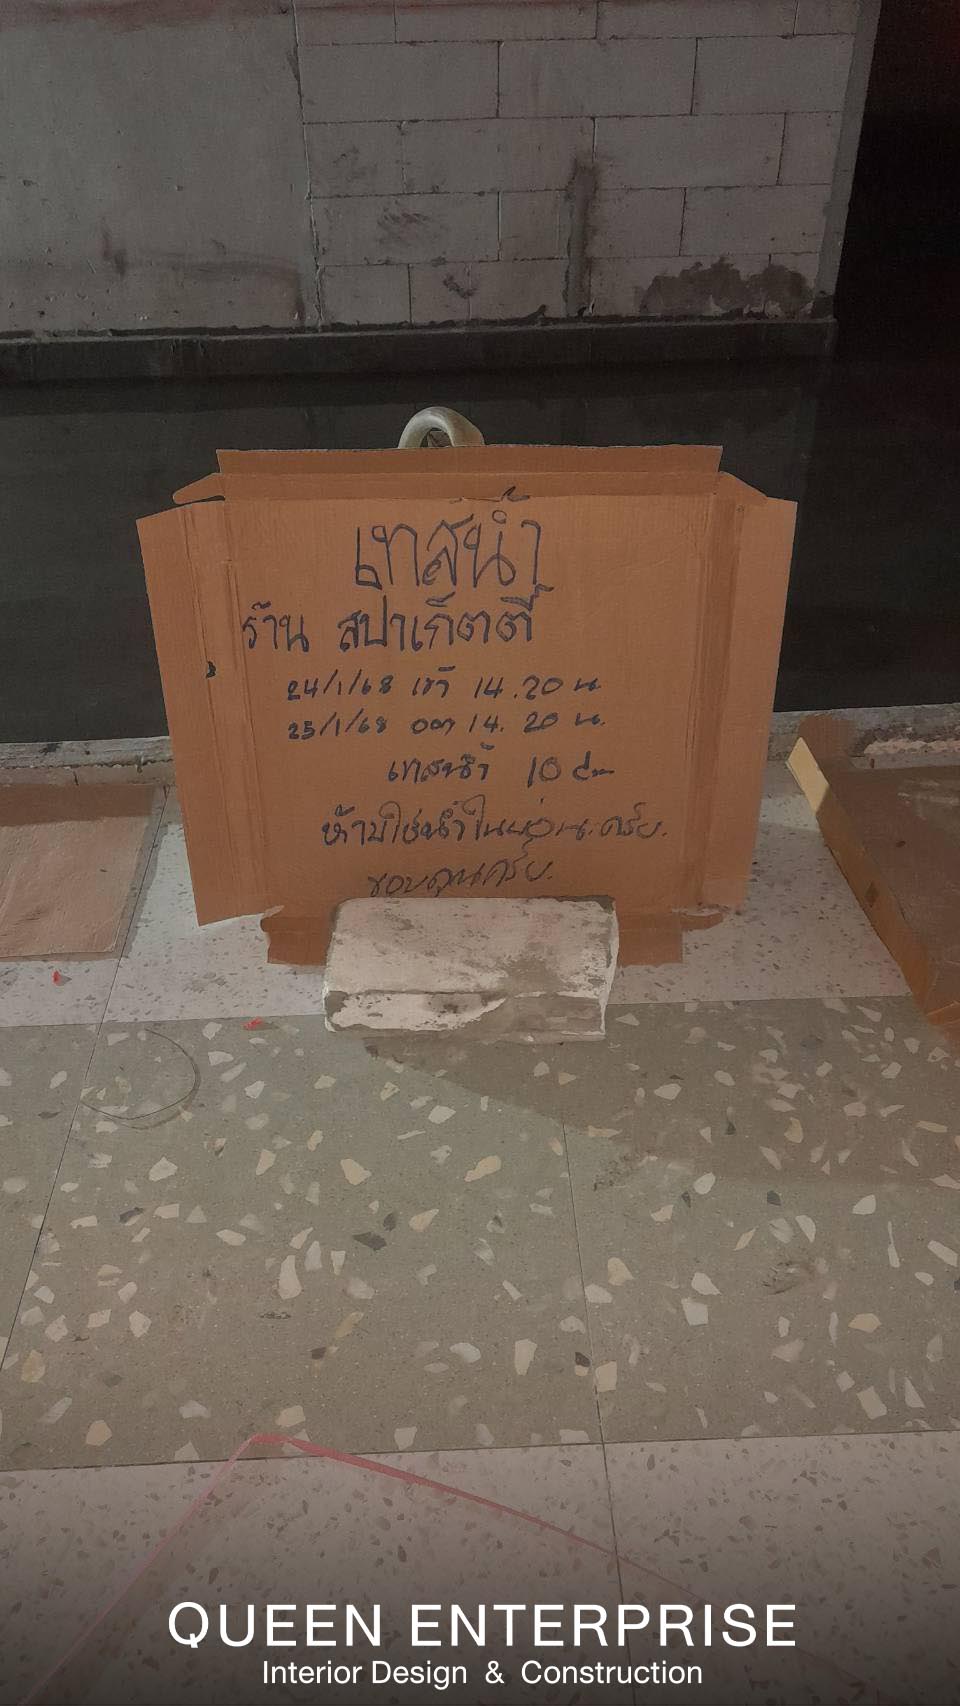 เทสน้ำ
ร้าน สปาเก็ตตี้
24/1/68 เข้า 14.20 น.
25/1/68 ออก 14.20 น.
เทสน้ำ 10 cm
ห้ามใช้น้ำในบ่อน.ครับ.
ขอบคุณครับ.
QUEEN ENTERPRISE
Interior Design & Construction